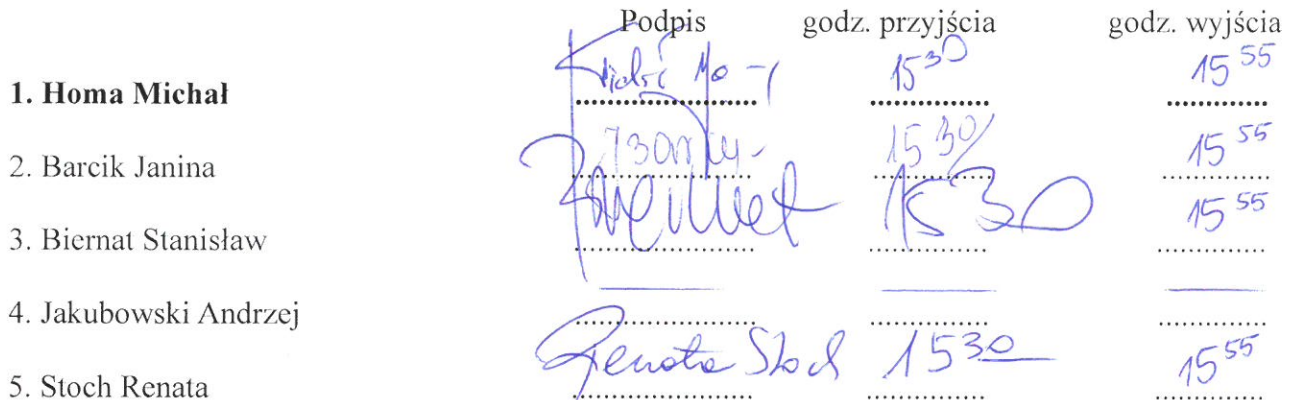 Podpis godz. przyjścia godz. wyjścia
1. Homa Michał 15 30 15 55
2. Barcik Janina 15 30 15 55
3. Biernat Stanisław 15 30 15 55
4. Jakubowski Andrzej
5. Stoch Renata Renata Stoch 15 30 15 55